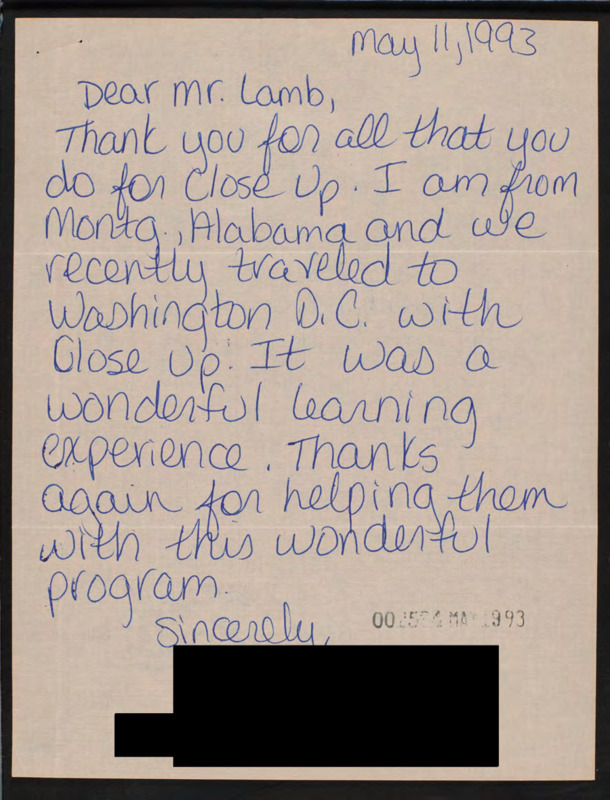 May 11, 1993
Dear Mr. Lamb,
Thank you for all that you
do for Close Up. I am from
Montg., Alabama and we
recently traveled to
Washington D.C. with
Close Up. It was a
wonderful learning
experience. Thanks
again for helping them
with this wonderful
program.
Sincerely,
1993